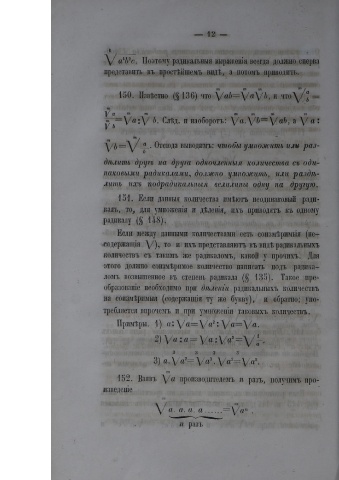 — 12 —
√a⁴b³c. Поэтому радикальныя выраженія всегда должно сперва
представить въ простѣйшемъ видѣ, а потомъ приводить.
150. Извѣстно (§ 136) что ᵐ√ab=ᵐ√a ᵐ√b, и что ᵐ√a/b =
ᵐ√a/ᵐ√b=ᵐ√a:ᵐ√b. Слѣд. и наоборотъ: ᵐ√a.ᵐ√b=ᵐ√ab, и ᵐ√a:
ᵐ√b=ᵐ√a/b. Отсюда выводимъ: чтобы умножить или раз-
дѣлить другъ на друга одночленныя количества съ оди-
наковыми радикалами, должно умножить, или раздѣ-
лить ихъ подрадикальныя величины одну на другую.
151. Если данныя количества имѣютъ неодинаковый ради-
калъ, то, для умноженія и дѣленія, ихъ приводятъ къ одному
радикалу (§ 148).
Если между данными количествами есть соизмѣримыя (не-
содержащія √), то и ихъ представляютъ въ видѣ радикальныхъ
количествъ съ такимъ же радикаломъ, какой у прочихъ. Для
этого должно соизмѣримое количество написать подъ радика-
ломъ возвышенное въ степень радикала (§ 135). Такое пре-
образованіе необходимо при дѣленіи радикальныхъ количествъ
на соизмѣримыя (содержащія ту же букву), и обратно; упо-
требляется впрочемъ и при умноженіи таковыхъ количествъ.
Примѣры. 1) a:√a=√a²:√a=√a.
2) √a:a=√a:√a²=√1/a.
3) a.³√a²=³√a³.³√a²=³√a⁵.
152. Взявъ ᵐ√a производителемъ n разъ, получимъ про-
изведеніе
ᵐ√a. a. a. a ......=ᵐ√aⁿ.
n разъ